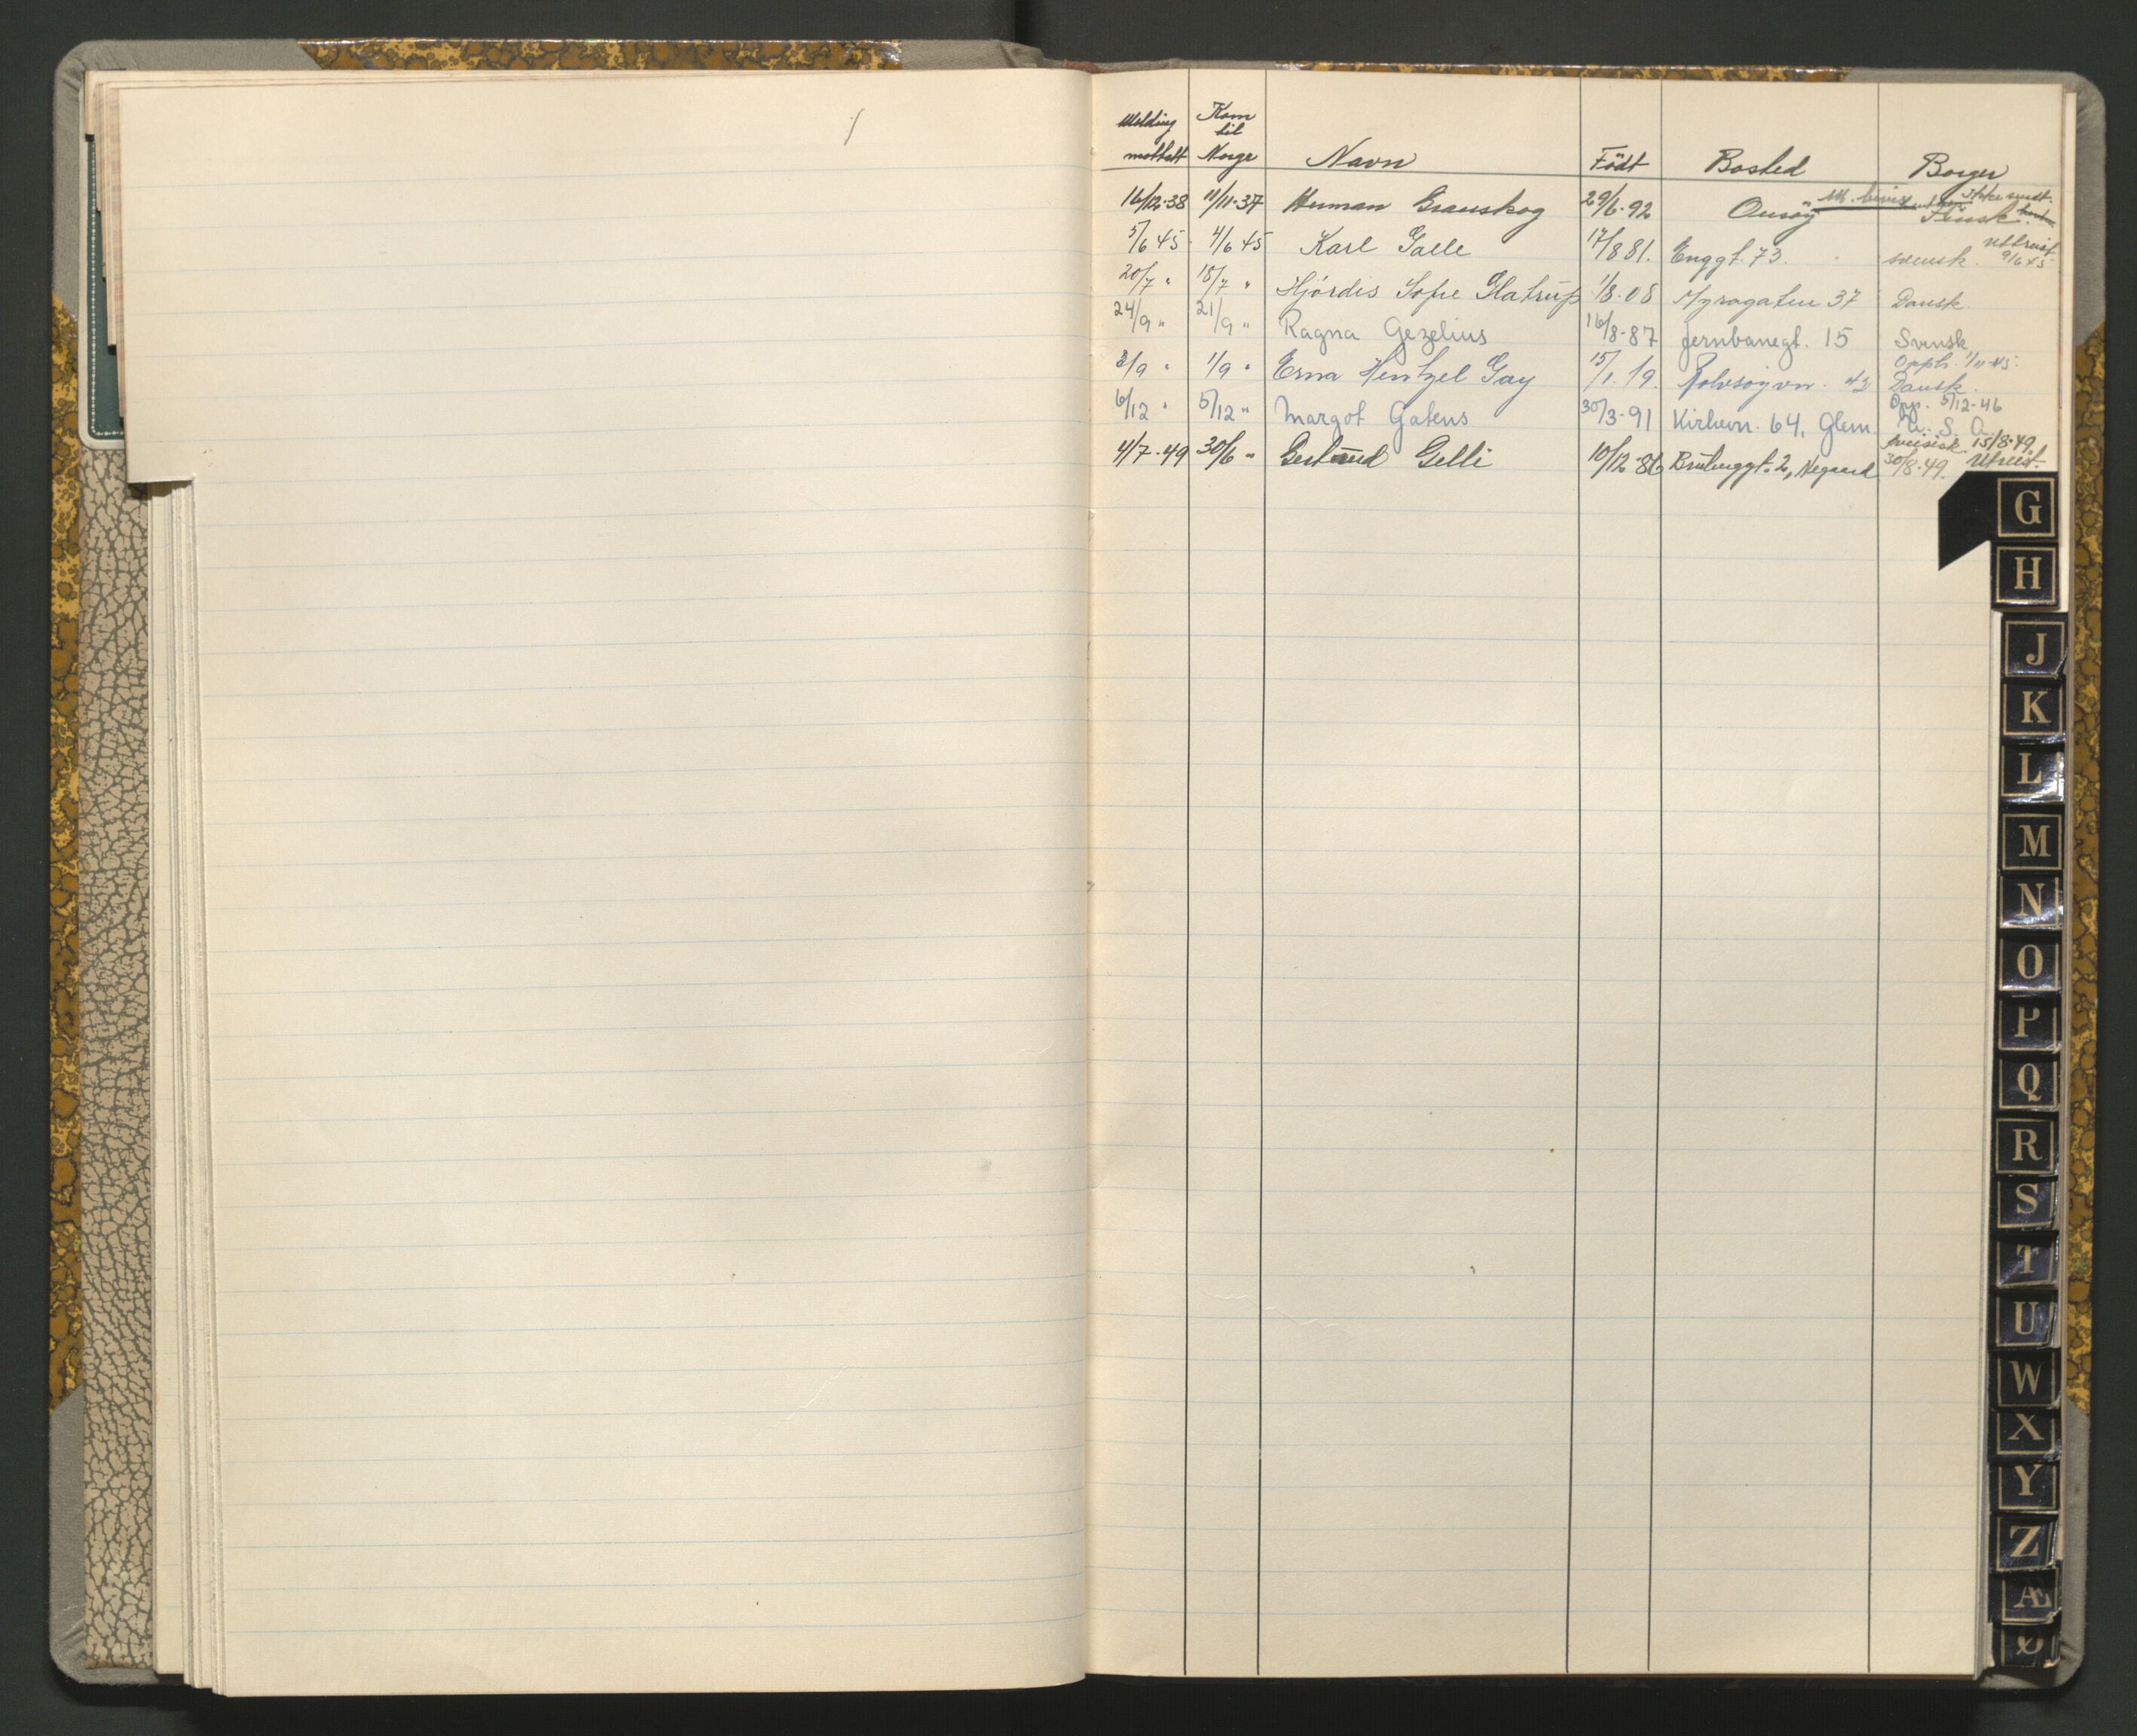 Melding Kom til
mottatt Norge Navn Född Bosted Borger
16/12-38 11/11-37 Herman Granskog 29/6-92 Onsöy Finsk. Ikke sendt.
5/6 45 4/6 45 Karl Galle 17/8 81. Enggt. 73. svensk. Uttreist 9/6 45
20/7 " 18/7 " Hjördis Sofie Glatrup 1/8-08 Myragaten 37 Dansk.
24/9 " 21/9 " Ragna Gezelius 16/8-87 Jernbanegt. 15 Svensk
Opph. 1/11-45.
3/9 " 1/9 " Erna Hentzel Gay 15/1. 19. Rolvsöyvn. 43 Dansk.
Opp. 5/12-46
6/12 " 5/12 " Margot Gatens 30/3-91 Kirkevn. 64, Glem. U. S. A.
15/8-49.
4/7-49 30/6 " Gertrud Gelli 10/12-86 2, 30/8-49. Utreist.
G
H
J
K
L
M
N
O
P
Q
R
S
T
U
W
X
Y
Z
Æ
Ø